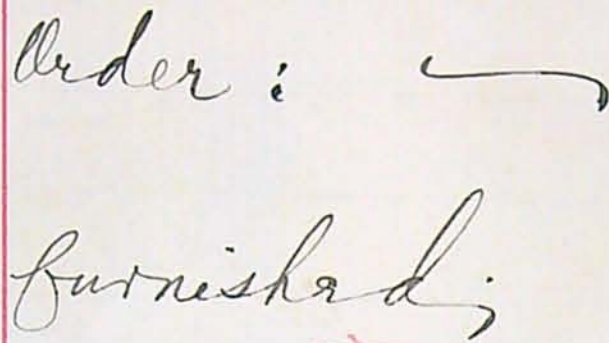 Order : —
furnished;